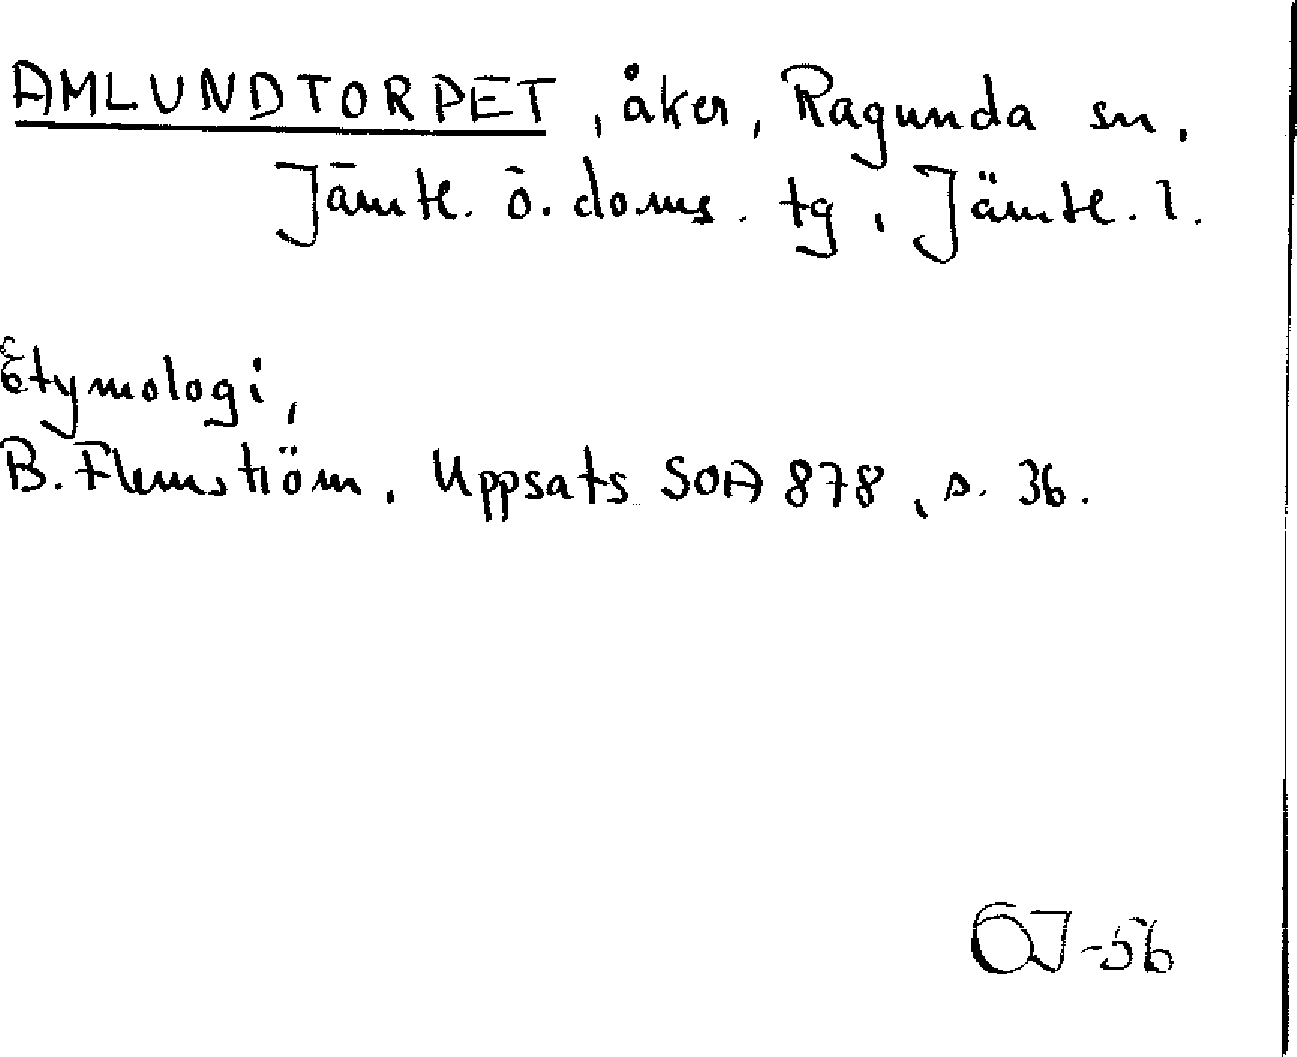 AMLUNDTORPET, åker, Ragunda sn,
Jämtl. ö. doms. tg, Jämtl. l.
Etymologi,
B. Flemström, Uppsats SOA 878, s. 36.
OJ-56